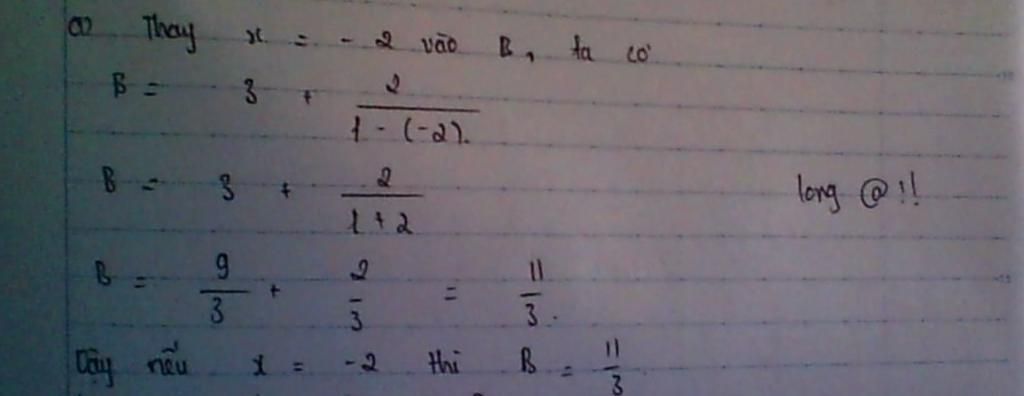 a) Thay x = - 2 vào B, ta có
B = 3 + 2 / 1 - (-2).
B = 3 + 2 / 1 + 2
long @ !!
B = 9/3 + 2/3 = 11/3.
Vậy nếu x = -2 thì B = 11/3